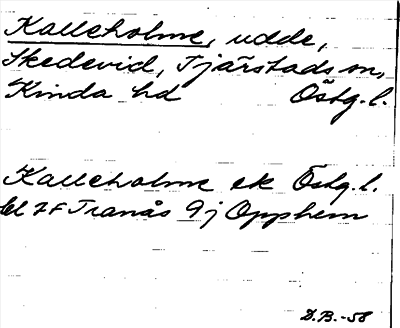 Kalleholme, udde,
Skedevid, Tjärstads sn,
Kinda hd Östg.l.
Kalleholme ek Östg.l.
bl 7F Tranås 9j Opphem
D.B.-58